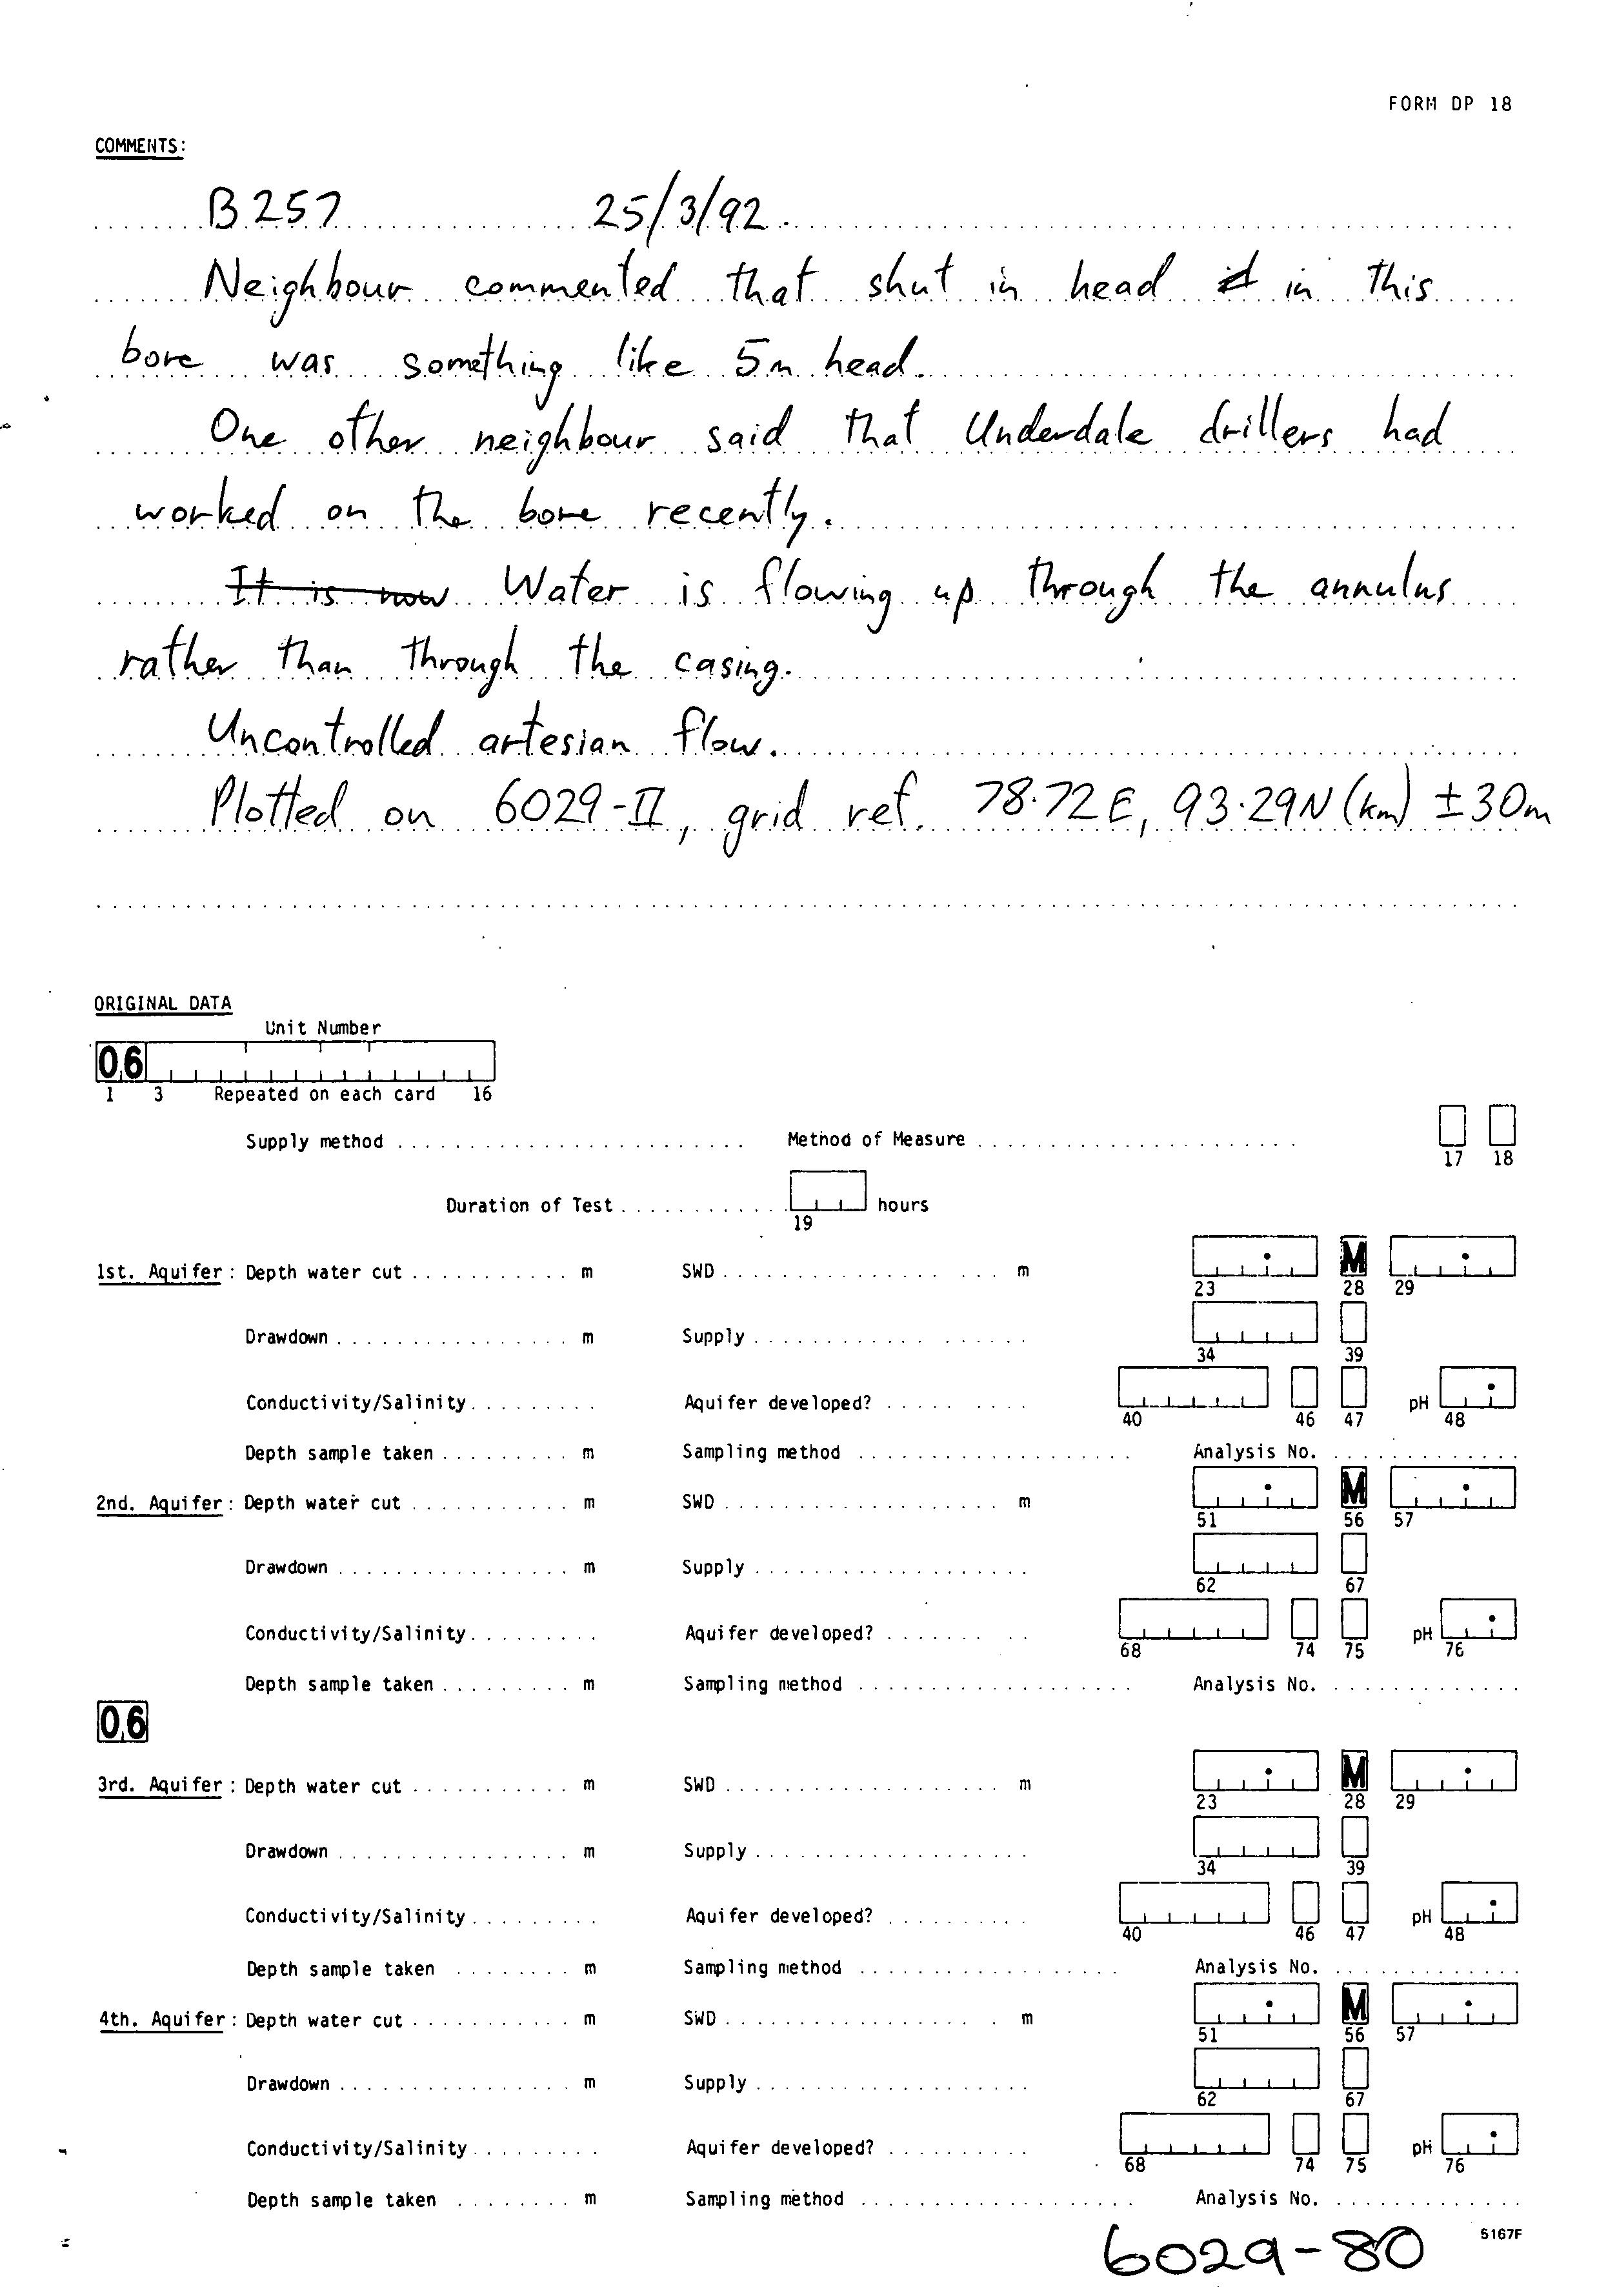 FORM DP 18
COMMENTS:
B257 25/3/92.
Neighbour commented that shut in head in this
bore was something like 5m head.
One other neighbour said that Underdale drillers had
worked on the bore recently.
It is now Water is flowing up through the annulus
rather than through the casing.
Uncontrolled artesian flow.
Plotted on 6029-II, grid ref. 78.72E, 93.29N (km) ±30m
ORIGINAL DATA
Unit Number
06
1 3 Repeated on each card 16
Supply method Method of Measure
17 18
Duration of Test hours
19
1st. Aquifer: Depth water cut m SWD m M
23 28 29
Drawdown m Supply
34 39
Conductivity/Salinity Aquifer developed? pH
40 46 47 48
Depth sample taken m Sampling method Analysis No.
2nd. Aquifer: Depth water cut m SWD m M
51 56 57
Drawdown m Supply
62 67
Conductivity/Salinity Aquifer developed? pH
68 74 75 76
Depth sample taken m Sampling method Analysis No.
06
3rd. Aquifer: Depth water cut m SWD m M
23 28 29
Drawdown m Supply
34 39
Conductivity/Salinity Aquifer developed? pH
40 46 47 48
Depth sample taken m Sampling method Analysis No.
4th. Aquifer: Depth water cut m SWD m M
51 56 57
Drawdown m Supply
62 67
Conductivity/Salinity Aquifer developed? pH
68 74 75 76
Depth sample taken m Sampling method Analysis No.
5167F
6029-80